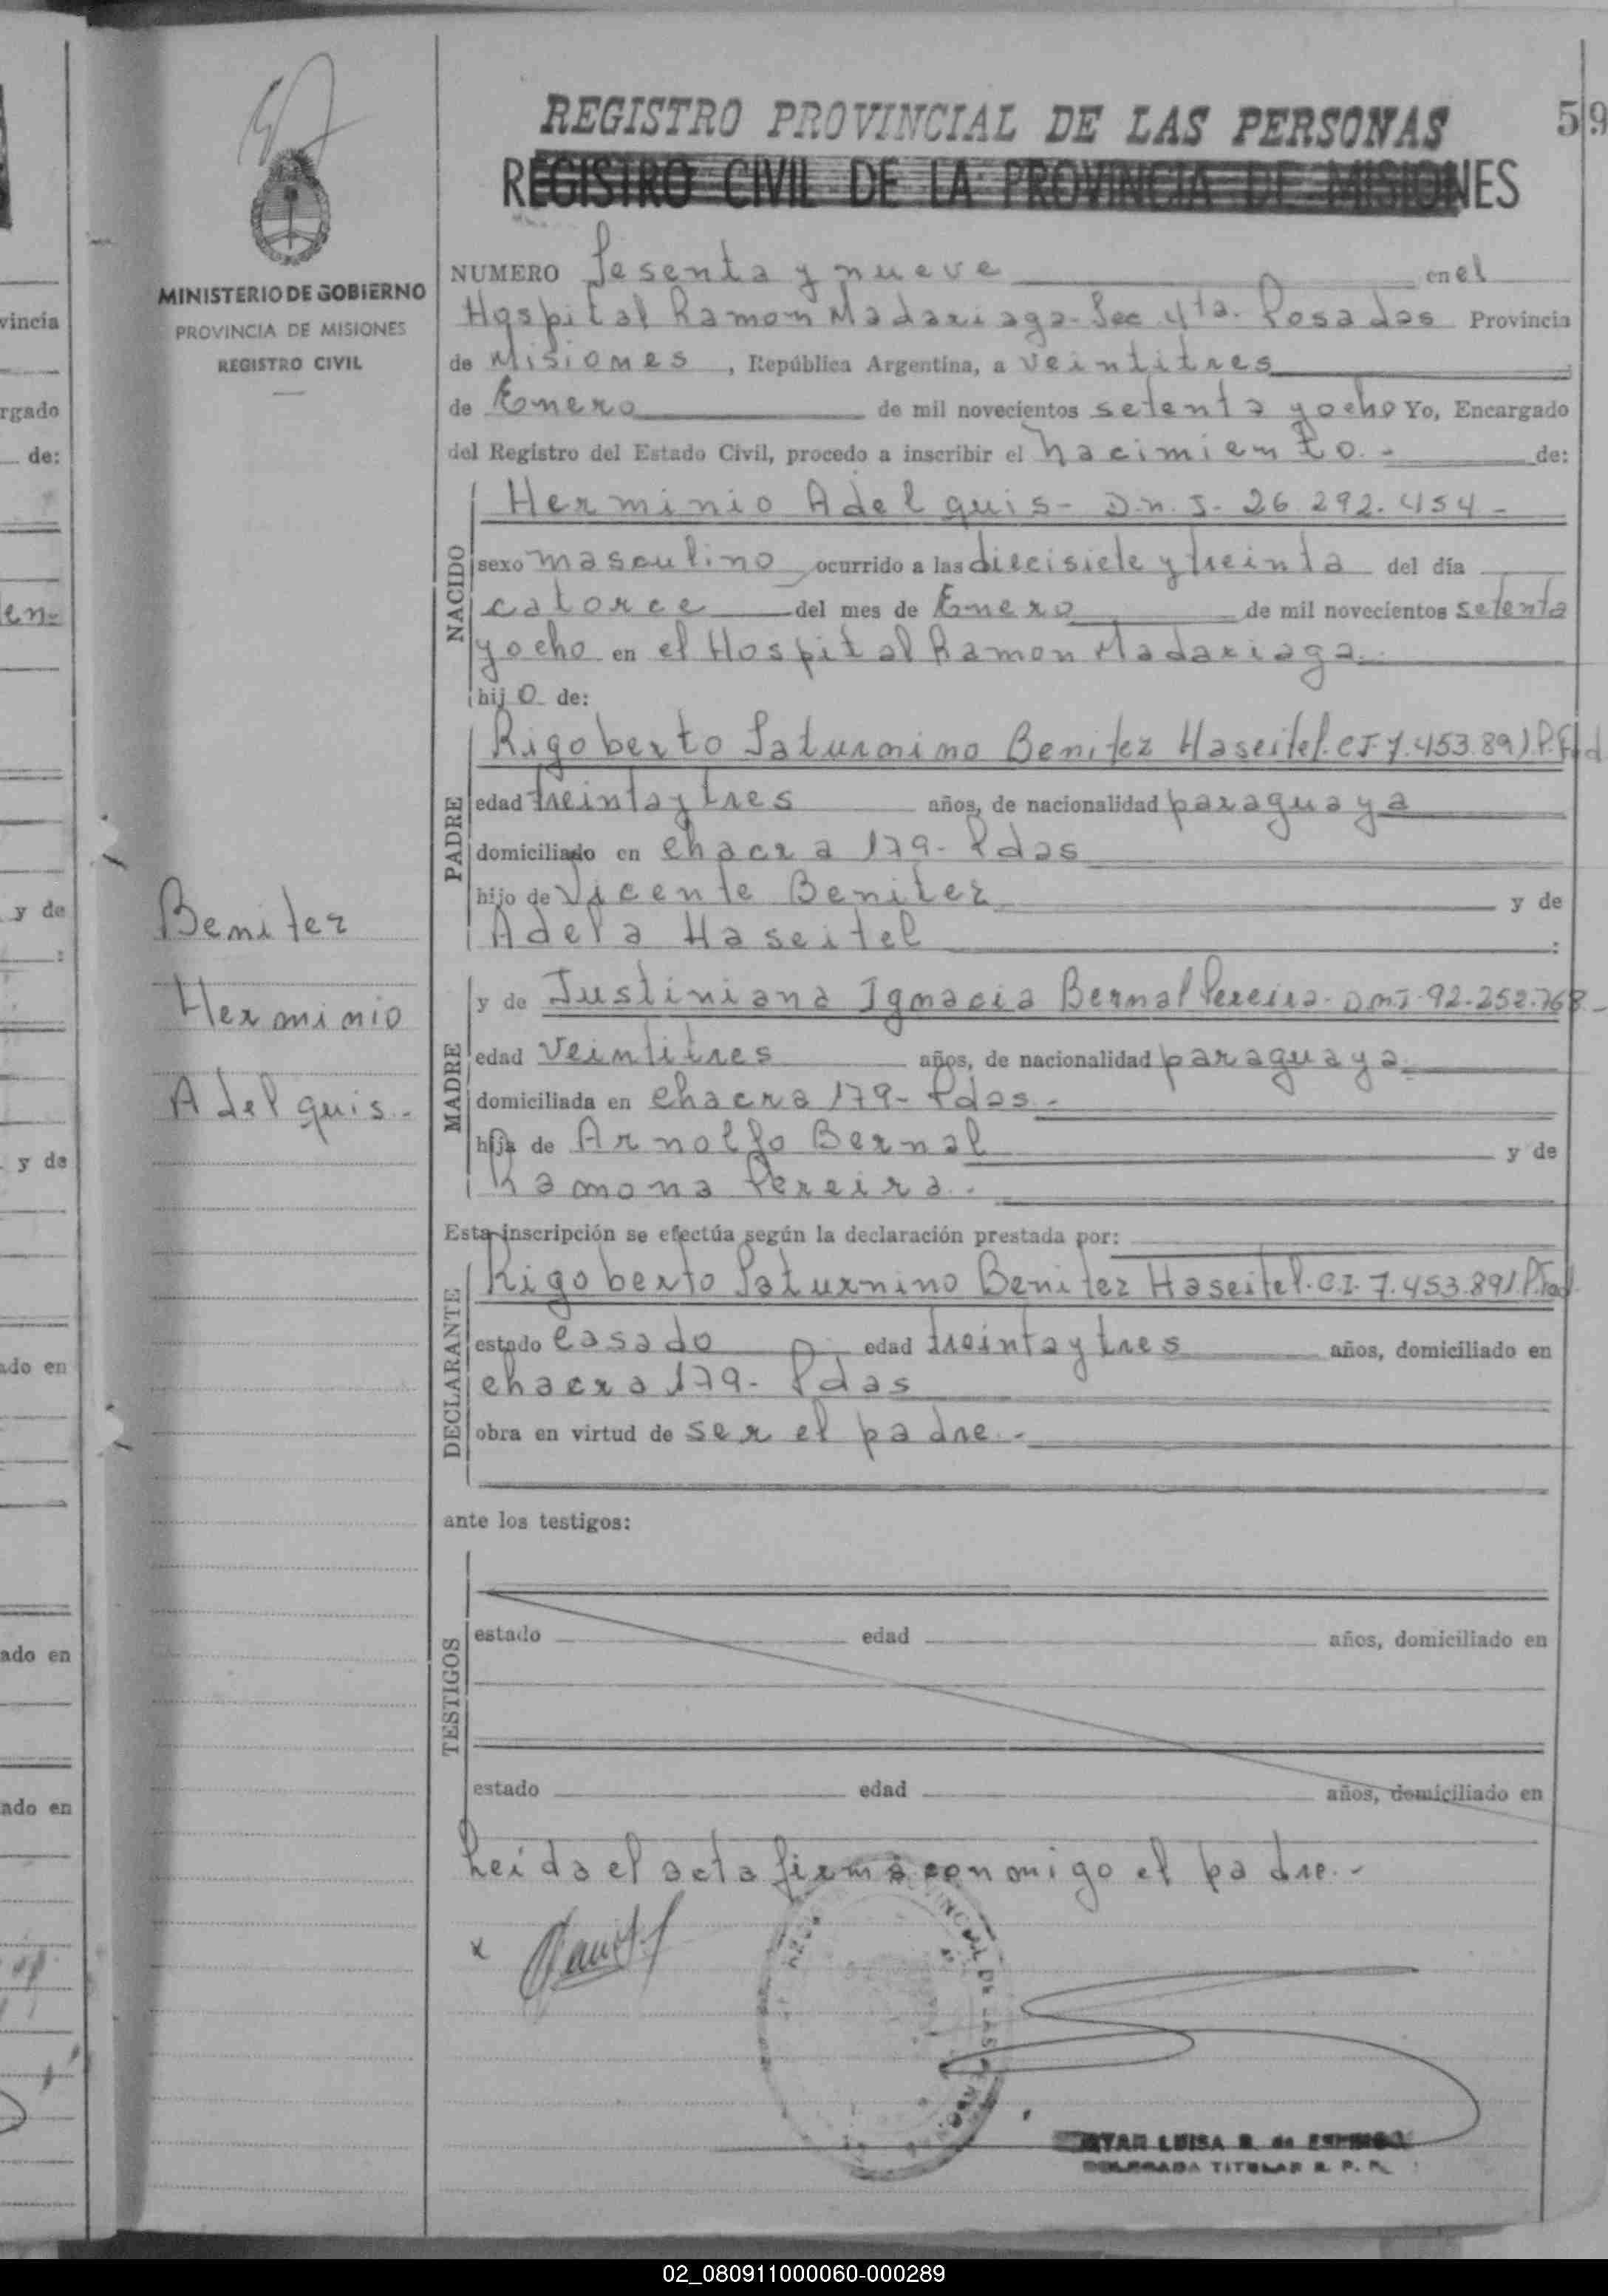 REGISTRO PROVINCIAL DE LAS PERSONAS
59
REGISTRO CIVIL DE LA PROVINCIA DE MISIONES
MINISTERIO DE GOBIERNO
PROVINCIA DE MISIONES
REGISTRO CIVIL
Benitez
Herminio
Adelquis.-
NUMERO Sesenta y nueve en el
Hospital Ramon Madariaga- Sec 4ta. Posadas Provincia
de Misiones, República Argentina, a veintitres
de Enero de mil novecientos setenta y ocho Yo, Encargado
del Registro del Estado Civil, procedo a inscribir el nacimiento.- de:
NACIDO
Herminio Adelquis- D.N.I- 26.292.454-
sexo masculino ocurrido a las diecisiete y treinta del día
catorce del mes de Enero de mil novecientos setenta
y ocho en el Hospital Ramon Madariaga.
hijo de:
PADRE
Rigoberto Saturnino Benitez Haseitel. CI- 7.453.891.P.Fed
edad treinta y tres años, de nacionalidad paraguaya
domiciliado en chacra 179- Pdas
hijo de Vicente Benitez y de
Adela Haseitel :
MADRE
y de Justiniana Ignacia Bernal Pereira- DNI- 92.252.768.-
edad veintitres años, de nacionalidad paraguaya.
domiciliada en chacra 179- Pdas.-
hija de Arnolfo Bernal y de
Ramona Pereira.-
Esta inscripción se efectúa según la declaración prestada por:
DECLARANTE
Rigoberto Saturnino Benitez Haseitel. C.I- 7.453.891.P.Fed.
estado casado edad treinta y tres años, domiciliado en
chacra 179- Pdas
obra en virtud de ser el padre.-
ante los testigos:
TESTIGOS
estado edad años, domiciliado en
estado edad años, domiciliado en
Leida el acta firma conmigo el padre.-
x
LUISA
TITULAR R. P. P.
vincia
rgado
de:
en-
y de
:
y de
ado en
ado en
ado en
02_080911000060-000289